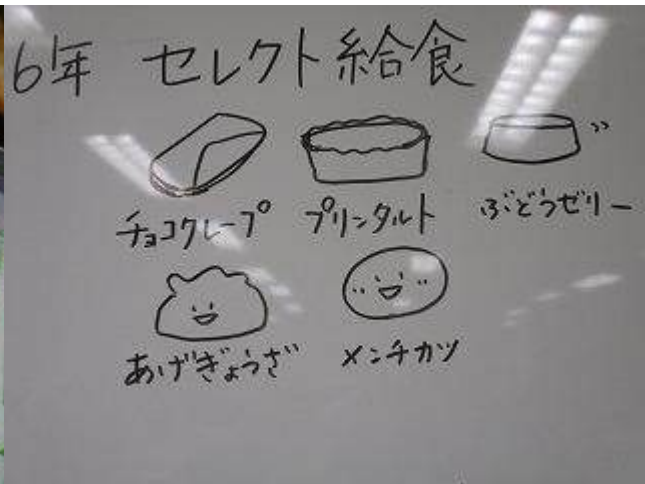 6年 セレクト給食
チョコクレープ プリンタルト ぶどうゼリー
あげぎょうざ メンチカツ